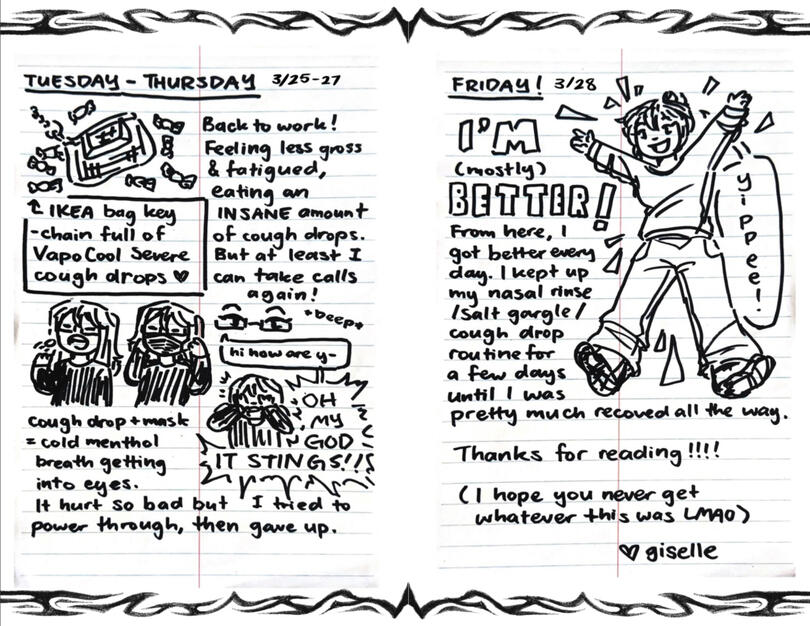 TUESDAY - THURSDAY 3/25-27
Back to work!
Feeling less gross
& fatigued,
eating an
INSANE amount
of cough drops.
But at least I
can take calls
again!
↑ IKEA bag key
-chain full of
VapoCool Severe
cough drops ♥
*beep*
hi how are y-
OH
MY
GOD
IT STINGS!!!
cough drop + mask
= cold menthol
breath getting
into eyes.
It hurt so bad but I tried to
power through, then gave up.
FRIDAY! 3/28
I'M
(mostly)
BETTER!
yippee!
From here, I
got better every
day. I kept up
my nasal rinse
/salt gargle/
cough drop
routine for
a few days
until I was
pretty much recoved all the way.
Thanks for reading!!!!
(I hope you never get
whatever this was LMAO)
♡ giselle